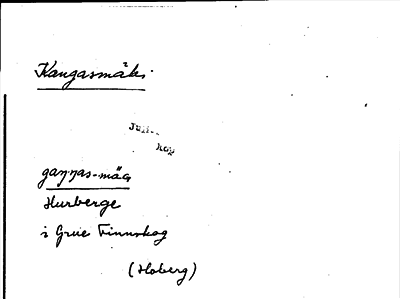 Kangasmäki
gaŋŋas-mäG
Hurberge
i Grue Finnskog
(Hoberg)